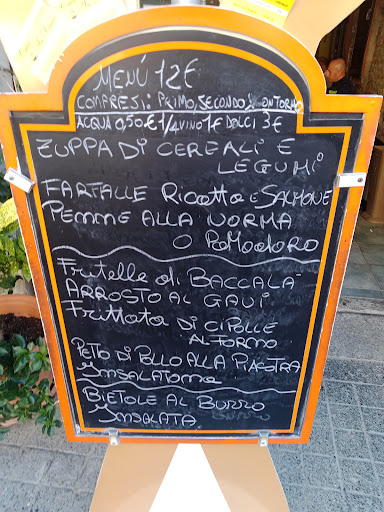 MENÚ 12€
COMPRESI: PRIMO, SECONDO, CONTORNO
ACQUA 0,50€ 1/4 VINO 1€ DOLCI 3€
ZUPPA DI CEREALI E
LEGUMI
FARFALLE RICOTTA E SALMONE
PENNE ALLA NORMA
O POMODORO
FRITELLE di BACCALA'
ARROSTO AL GAVI
FRITTATA DI CIPOLLE
AL FORNO
PETTO DI POLLO ALLA PIASTRA
INSALATONA
BIETOLE AL BURRO
INSALATA